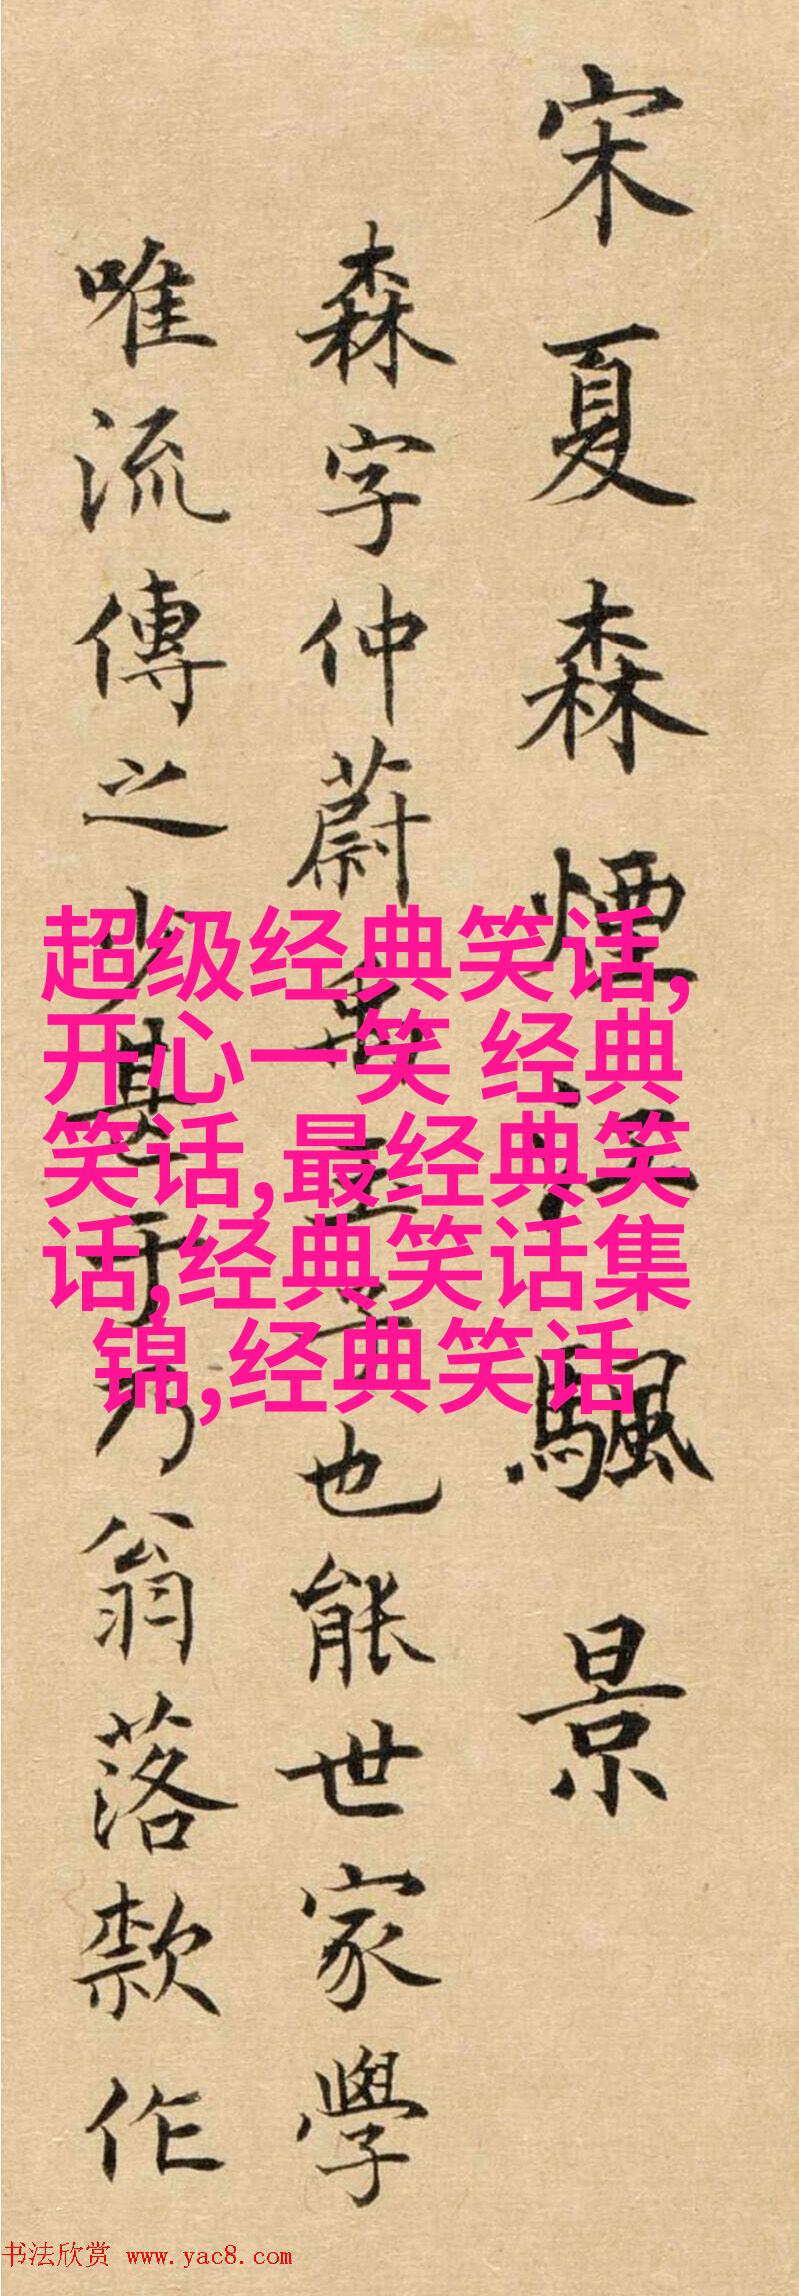 宋夏森煙江颿景
森字仲蔚珪子也能世家學
唯流傳之少甚于乃翁落款作
超级经典笑话,
开心一笑 经典
笑话,最经典笑
话,经典笑话集
锦,经典笑话
书法欣赏 www.yac8.com